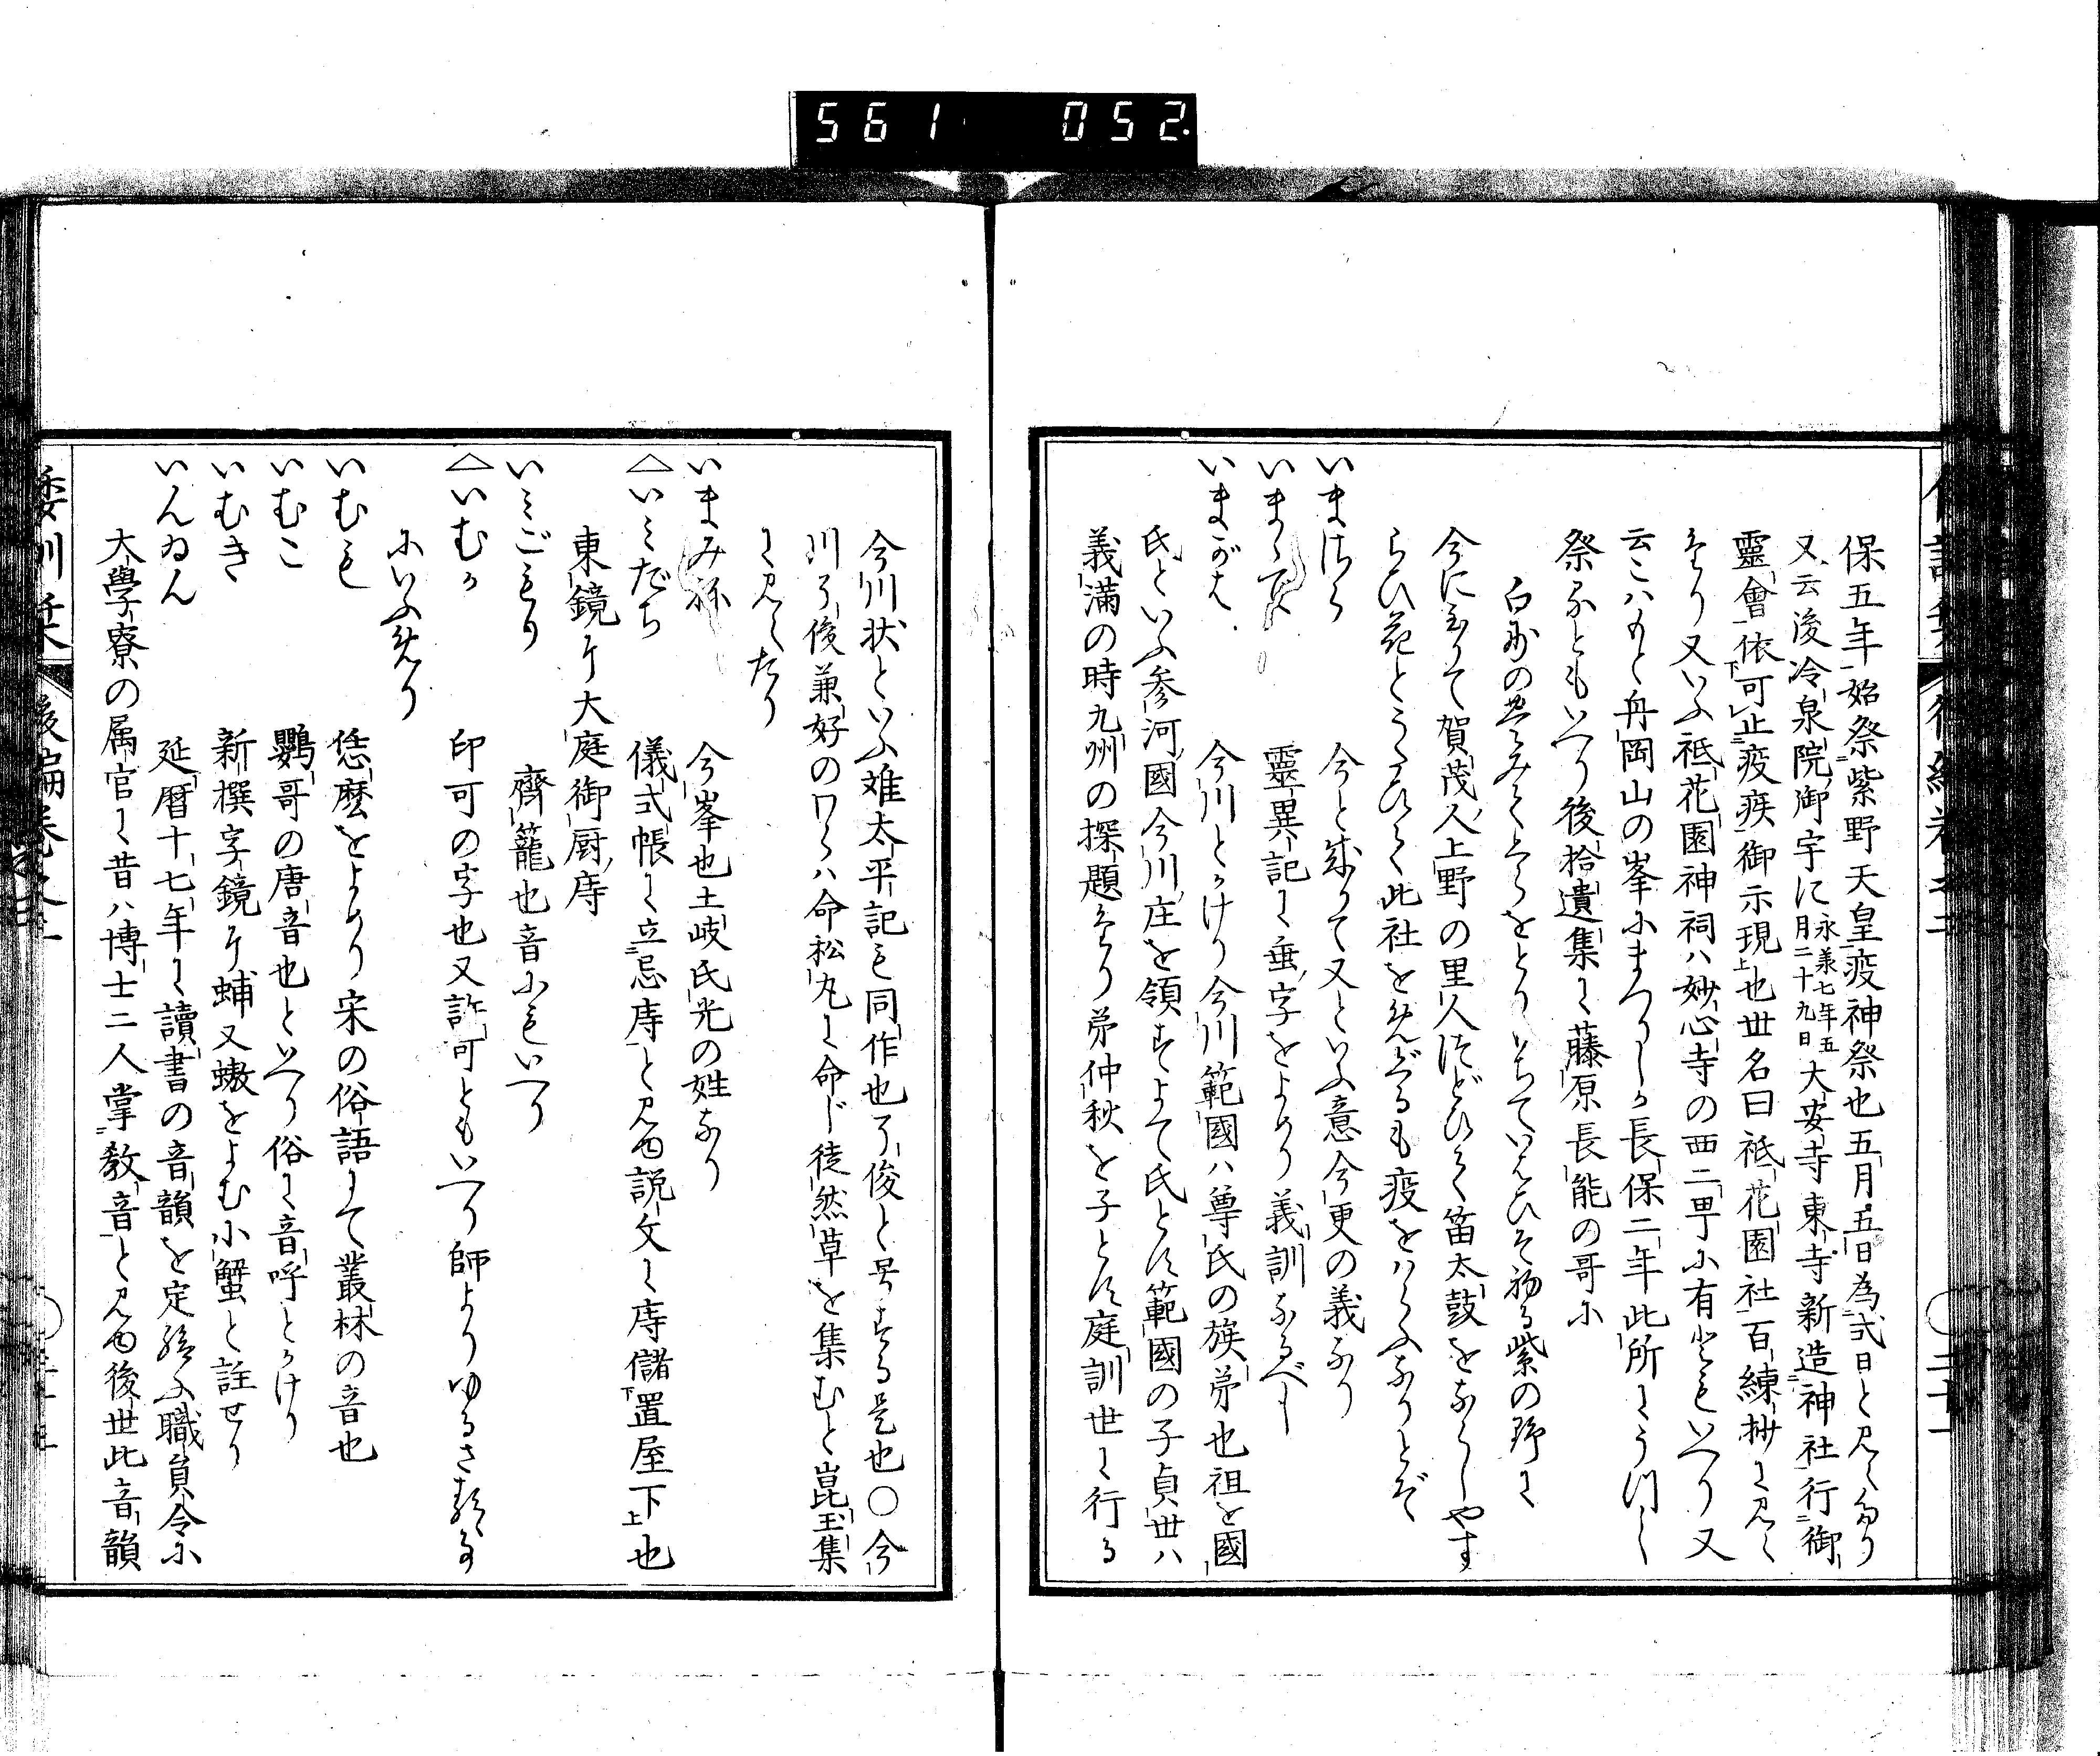 561 052
保五年始祭紫野天皇疫神祭也五月五日為式日と見えたり
又云後冷泉院御宇に永兼七年五月二十九日大安寺東寺新造神社行御
靈會依可止疫疾御示現也世名曰祇花園社百練抄に見え
たり又いふ祇花園神祠ハ妙心寺の西二町に有ともいへり又
云こハもと舟岡山の峯にまつりしか長保二年此所にうつし
祭るともいへり後拾遺集に藤原長能の哥に
白妙の豊みてくらをとりもちていはひそ初る紫の野に
今に至りて賀茂人上野の里人つどひて笛太鼓をならしやす
らひ花とうたひて此社をめぐるも疫をはらふなりとぞ
いまはら 今と成りて又といふ意今更の義なり
いまゝで 靈異記に垂字をよめり義訓なるべし
いまがは 今川とかけり今川範國ハ尊氏の族弟也祖を國
氏といふ参河國今川庄を領すよて氏とす範國の子貞世ハ
義滿の時九州の探題たり弟仲秋を子とす庭訓世に行る
今川状といふ难太平記も同作也了俊と号する是也〇今
川了俊兼好のわらハ命松丸に命じ徒然草を集むと崑玉集
に見えたり
いまみね 今峯也土岐氏光の姓なり
△いみだち 儀式帳に立忌庤と見ゆ説文に庤儲置屋下也
東鏡に大庭御厨庤
いみごもり 齊籠也音にもいへり
△いむか 印可の字也又許可ともいへり師よりゆるさるゝ事
にいふめり
いむも 恁麼をよめり宋の俗語にて叢林の音也
いむこ 鸚哥の唐音也といへり俗に音呼とかけり
いむき 新撰字鏡に蜅又螯をよむ小蟹と註せり
いんゐん 延暦十七年に讀書の音韻を定給ふ職員令に
大學寮の属官に昔ハ博士二人掌教音と見ゆ後世此音韻
倭訓栞 後編巻之二